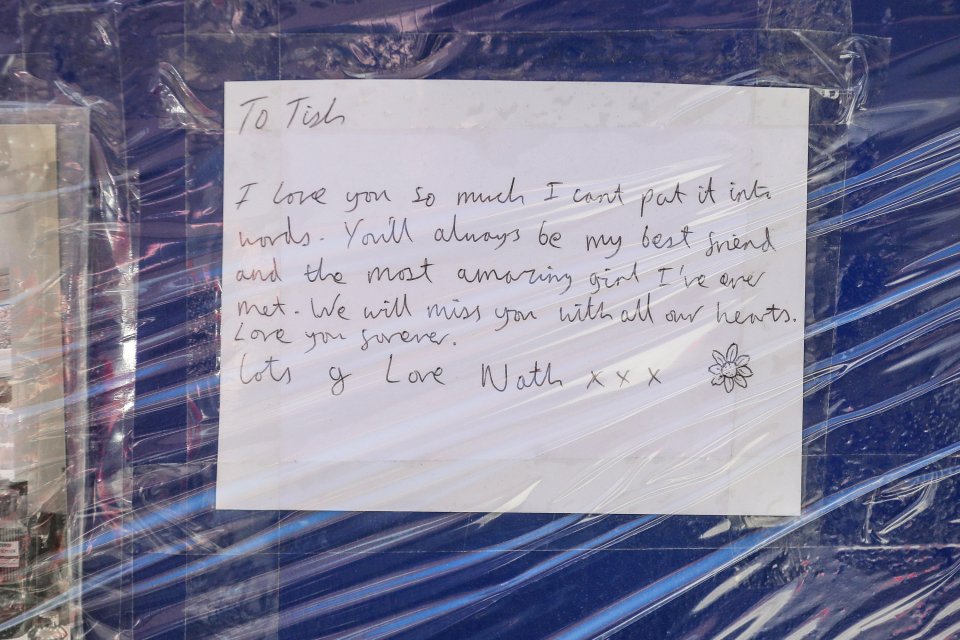 To Tish
I love you so much I cant put it into
words. You'll always be my best friend
and the most amazing girl I've ever
met. We will miss you with all our hearts.
Love you forever.
Lots of Love Nath x x x